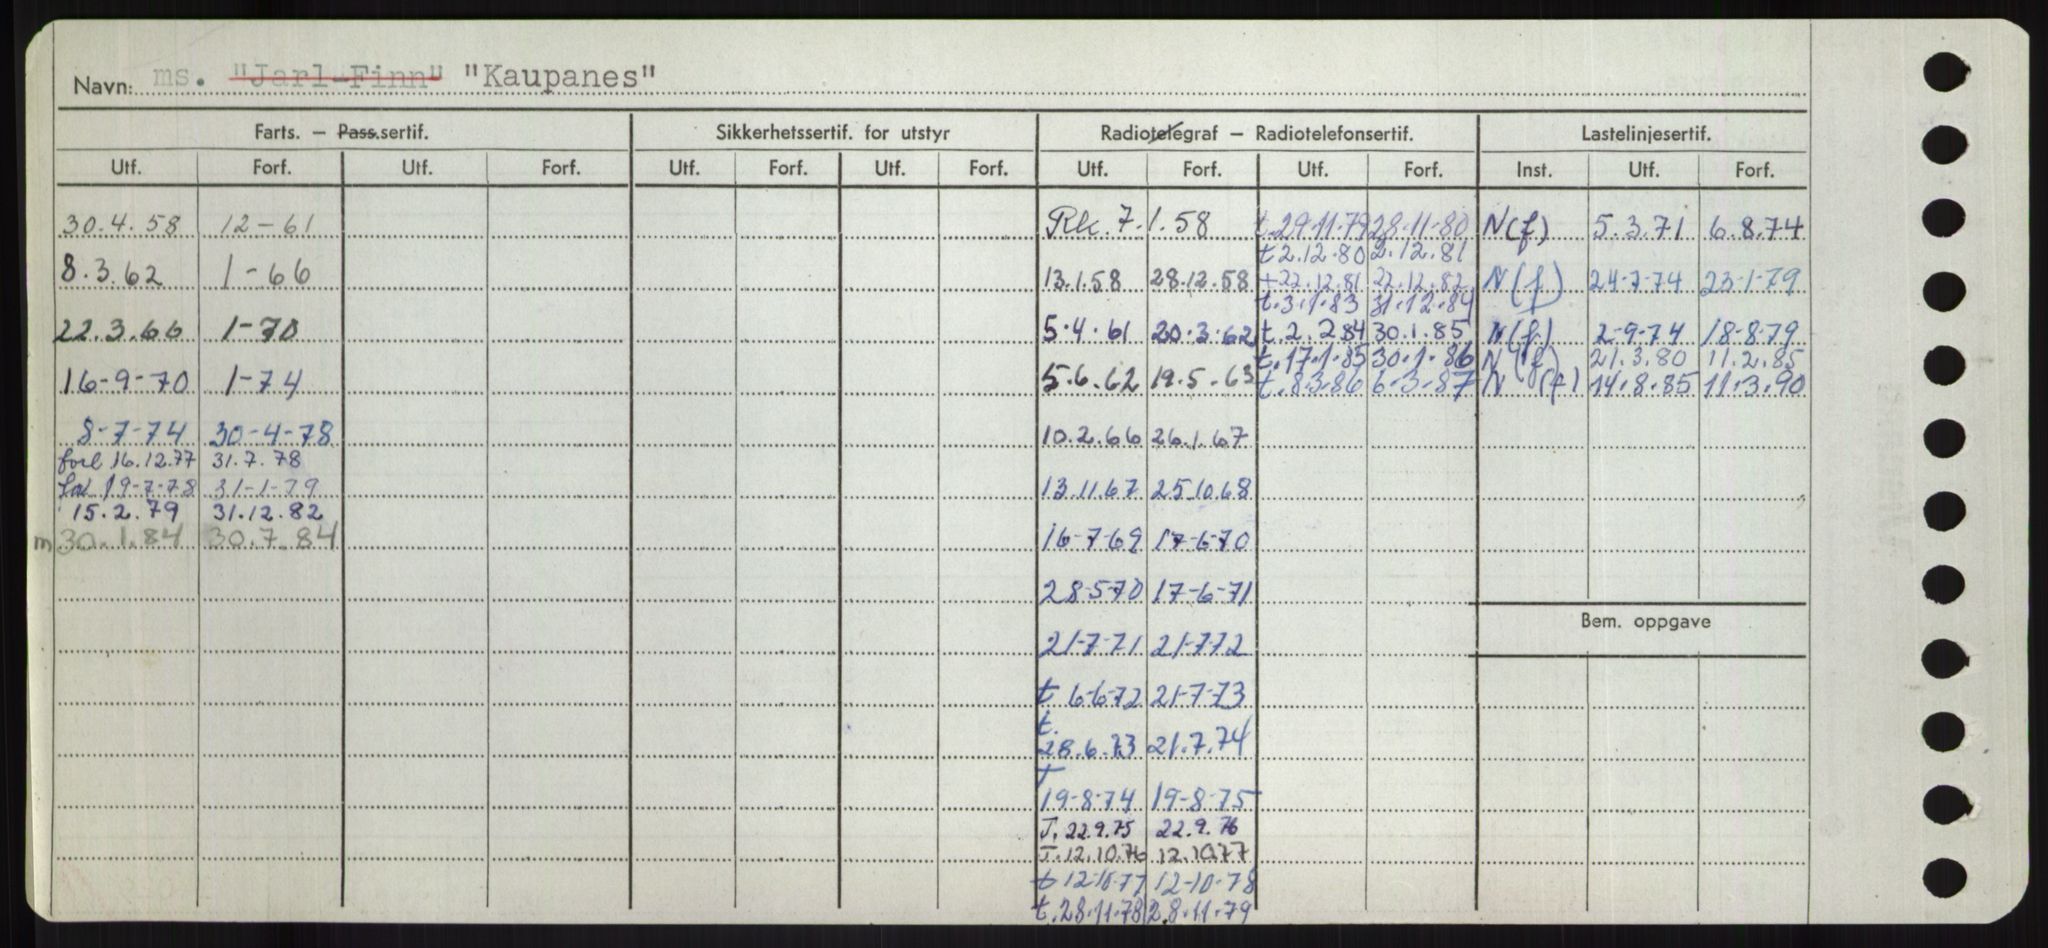 Navn: ms. "Jarl-Finn" "Kaupanes"
Farts. — Pass.sertif. Sikkerhetssertif. for utstyr Radiotelegraf — Radiotelefonsertif. Lastelinjesertif.
Utf. Forf. Utf. Forf. Utf. Forf. Utf. Forf. Utf. Forf. Utf. Forf. Inst. Utf. Forf.
30.4.58 12-61 Rk. 7.1.58 t.29.11.79 28.11.80 N(f) 5.3.71 6.8.74
t 2.12.80 2.12.81
8.3.62 1-66 13.1.58 28.12.58 t 22.12.81 22.12.82 N(f) 24-7-74 23-1-79
t.3.1.83 31.12.84
22.3.66 1-70 5.4.61 20.3.62 t.2.2.84 30.1.85 N(f) 2-9-74 18-8-79
t.17.1.85 30.1.86 N(f) 21.3.80 11.2.85
16-9-70 1-74 5.6.62 19.5.63 t.8.3.86 6.3.87 N(f) 14.8.85 11.3.90
8-7-74 30-4-78 10.2.66 26.1.67
forl 16.12.77 31.7.78
forl 19-7-78 31-1-79 13.11.67 25.10.68
15.2.79 31.12.82
m 30.1.84 30.7.84 16-7-69 17-6-70
28-5-70 17-6-71
Bem. oppgave
21-7-71 21-7-72
t 6-6-72 21-7-73
t.
28.6.73 21.7.74
T
19-8-74 19-8-75
T. 22.9.75 22.9.76
T. 12.10.76 12.10.77
t 12-10-77 12-10-78
t.28.11.78 28.11.79